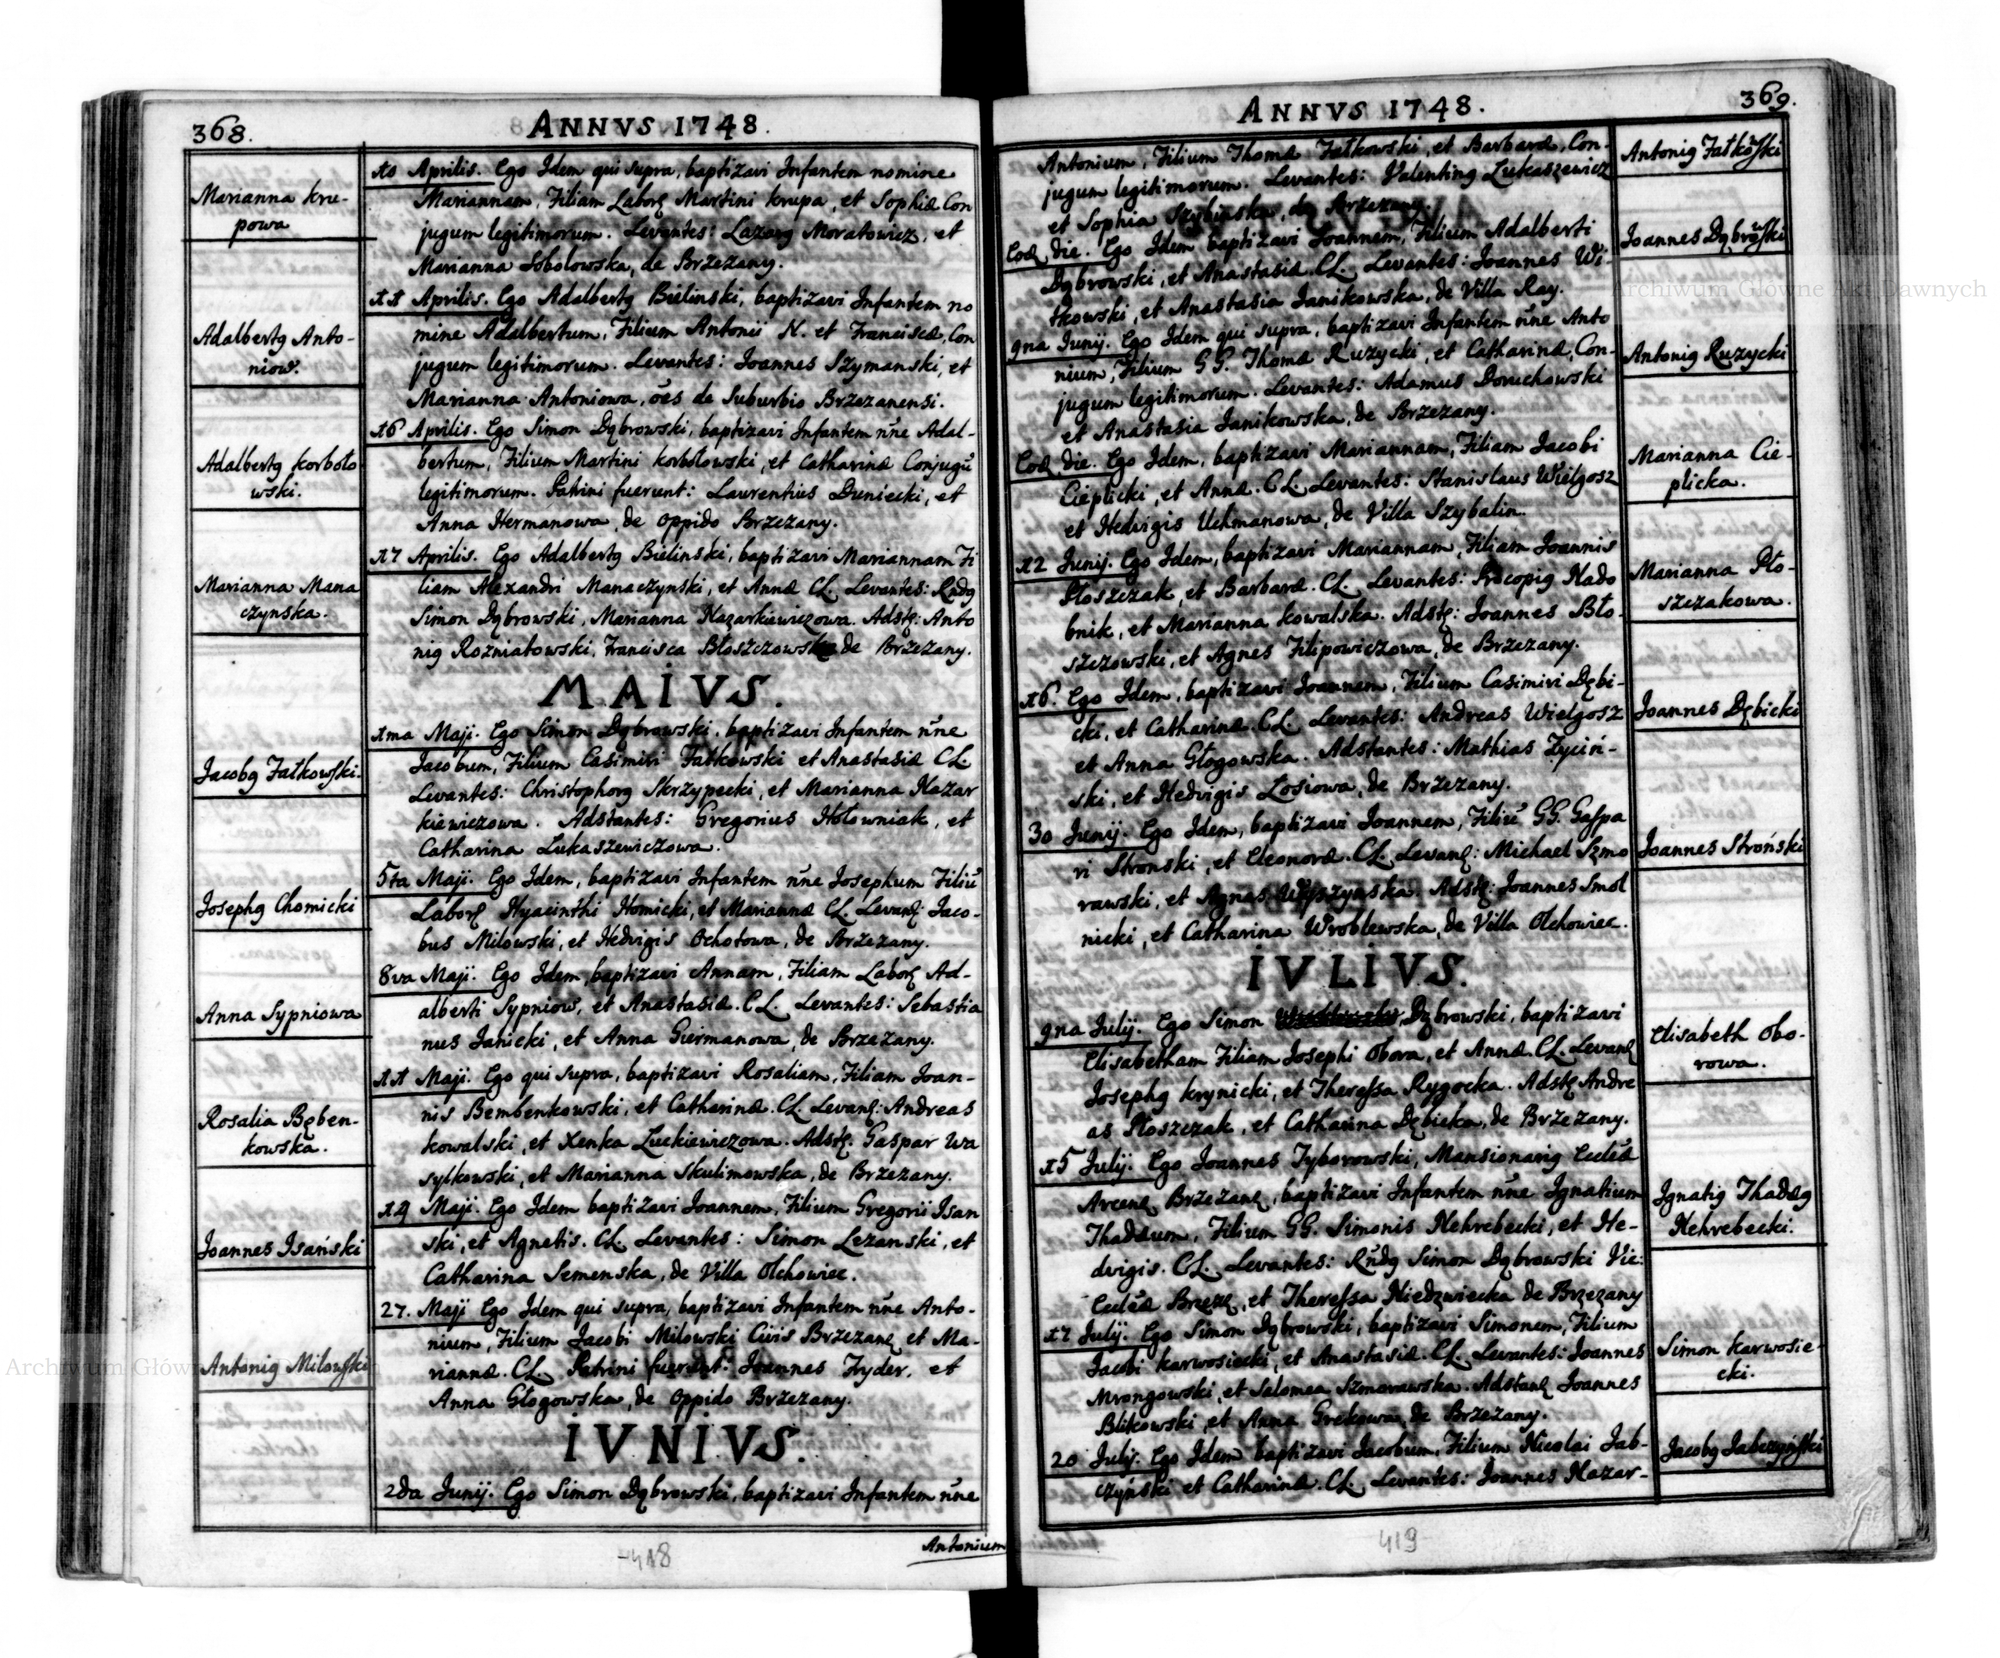 368.
ANNVS 1748.
Marianna Kru-
powa
10 Aprilis. Ego Idem qui supra, baptizavi Infantem nomine
Mariannam, Filiam Labor Martini Krupa, et Sophiæ Con
jugum legitimorum. Levantes: Lazarg Moratowicz, et
Marianna Sobolowska, de Brzezany.
Adalbertg Anto-
niow.
11 Aprilis. Ego Adalbertg Bielinski, baptizavi Infantem no
mine Adalbertum, Filium Antonii N. et Franciscæ, Con
jugum legitimorum. Levantes: Joannes Szymanski, et
Marianna Antoniowa, oes de Suburbio Brzezanensi.
Adalbertg Korboło
wski.
16 Aprilis. Ego Simon Dąbrowski, baptizavi Infantem nne Adal-
bertum, Filium Martini Korbołowski, et Catharinæ Conjugū
legitimorum. Patrini fuerunt: Laurentius Duniecki, et
Anna Hermanowa, de oppido Brzezany.
Marianna Mana
czynska.
17 Aprilis. Ego Adalbertg Bielinski, baptizavi Mariannam Fi
liam Alexandri Manaczynski, et Annæ CL. Levantes: Rndg
Simon Dąbrowski, Marianna Nazarkiewiczowa. Adstt: Anto
nig Rozniatowski, Francisca Błoszczowska de Brzezany.
MAIVS.
Jacobg Fatkowski.
1ma Maji. Ego Simon Dąbrowski, baptizavi Infantem nne
Jacobum, Filium Casimiri Fatkowski et Anastasiæ CL.
Levantes: Christophorg Skrzypecki, et Marianna Nazar
kiewiczowa. Adstantes: Gregorius Hołowniak, et
Catharina Lukaszewiczowa.
Josephg Chomicki
5ta Maji. Ego Idem, baptizavi Infantem nne Josephum Filiū
Labor Hyacinthi Homicki, et Mariannæ CL. Levan: Jaco-
bus Milowski, et Hedvigis Ochotowa, de Brzezany.
Anna Sypniowa
8va Maji. Ego Idem, baptizavi Annam, Filiam Labor Ad-
alberti Sypniow, et Anastasiæ. CL. Levantes: Sebastia
nus Janicki, et Anna Giermanowa, de Brzezany.
Rosalia Bęben-
kowska.
11 Maji. Ego qui supra, baptizavi Rosaliam, Filiam Joan-
nis Bembenkowski, et Catharinæ. CL. Levan: Andreas
Kowalski, et Xenka Luckiewiczowa. Adstt. Gaspar Wa
sylkowski, et Marianna Skulimowska, de Brzezany.
Joannes Isański
19 Maji. Ego Idem baptizavi Joannem, Filium Gregorii Isan
ski, et Agnetis. CL. Levantes: Simon Lezanski, et
Catharina Semenska, de Villa Olchowiec.
Antonig Milowski
27. Maji Ego Idem qui supra, baptizavi Infantem nne Anto-
nium, Filium Jacobi Milowski Civis Brzezan et Ma-
riannæ. CL. Patrini fuerunt: Joannes Fryder, et
Anna Głogowska, de oppido Brzezany.
IVNIVS.
2da Junij. Ego Simon Dąbrowski, baptizavi Infantem nne
Antonium
-418
ANNVS 1748.
369.
Antonium, Filium Thomæ Fatkowski, et Barbaræ, Con-
jugum legitimorum. Levantes: Valenting Lukaszewicz
et Sophia Szybinska, de Brzezany.
Antonig Fatkowski
Eod die. Ego Idem baptizavi Joannem, Filium Adalberti
Dąbrowski, et Anastasiæ. CL. Levantes: Joannes Wi-
tkowski, et Anastasia Janikowska, de Villa Ray.
Joannes Dąbrowski
9na Junij. Ego Idem qui supra, baptizavi Infantem nne Anto
nium, Filium GG. Thomæ Ruzycki, et Catharinæ, Con-
jugum legitimorum. Levantes: Adamus Doruchowski
et Anastasia Janikowska, de Brzezany.
Antonig Ruzycki
Eod die. Ego Idem, baptizavi Mariannam, Filiam Jacobi
Cieplicki, et Annæ. CL. Levantes: Stanislaus Wielgosz
et Hedvigis Uchmanowa, de Villa Szybalin.
Marianna Cie-
plicka.
12 Junij. Ego Idem, baptizavi Mariannam, Filiam Joannis
Płoszczak, et Barbaræ. CL. Levantes: Procopig Nado
bnik, et Marianna Kowalska. Adstt: Joannes Bło-
szczowski, et Agnes Filipowiczowa, de Brzezany.
Marianna Pło-
szczakowa.
16. Ego Idem, baptizavi Joannem, Filium Casimiri Dębi-
cki, et Catharinæ. CL. Levantes: Andreas Wielgosz
et Anna Głogowska. Adstantes: Mathias Zyciń-
ski, et Hedvigis Łosiowa, de Brzezany.
Joannes Dębicki
30 Junij. Ego Idem, baptizavi Joannem, Filiū GG. Gaspa
ri Stronski, et Eleonoræ. CL. Levan: Michael Szmo
rawski, et Agnes Wyszynska. Adstt: Joannes Smol
nicki, et Catharina Wroblewska, de Villa Olchowiec.
Joannes Stroński
IVLIVS.
9na Julij. Ego Simon Dąbrowski, baptizavi
Elisabetham Filiam Josephi Obora, et Annæ. CL. Levan
Josephg Krynicki, et Theressa Rygocka. Adstt Andre
as Płoszczak, et Catharina Dębicka, de Brzezany.
Elisabeth Obo-
rowa.
15 Julij. Ego Joannes Tyborowski, Mansionarig Eccliæ
Arcen Brzezan, baptizavi Infantem nne Ignatium
Thadæum, Filium GG. Simonis Nehrebecki, et He-
dvigis. CL. Levantes: Rndg Simon Dąbrowski Vic:
Eccliæ Brzez, et Theressa Niedzwiecka de Brzezany
Ignatig Thadæg
Nehrebecki.
17 Julij. Ego Simon Dąbrowski, baptizavi Simonem, Filium
Jacobi Karwosiecki, et Anastasiæ. CL. Levantes: Joannes
Mrongowski, et Salomea Szmorawska. Adstan Joannes
Blikowski, et Anna Grekowa, de Brzezany.
Simon Karwosie-
cki.
20 Julij. Ego Idem baptizavi Jacobum, Filium Nicolai Jab-
czyński et Catharinæ. CL. Levantes: Joannes Nazar-
Jacobg Jabczyński
419
Archiwum Główne Akt Dawnych